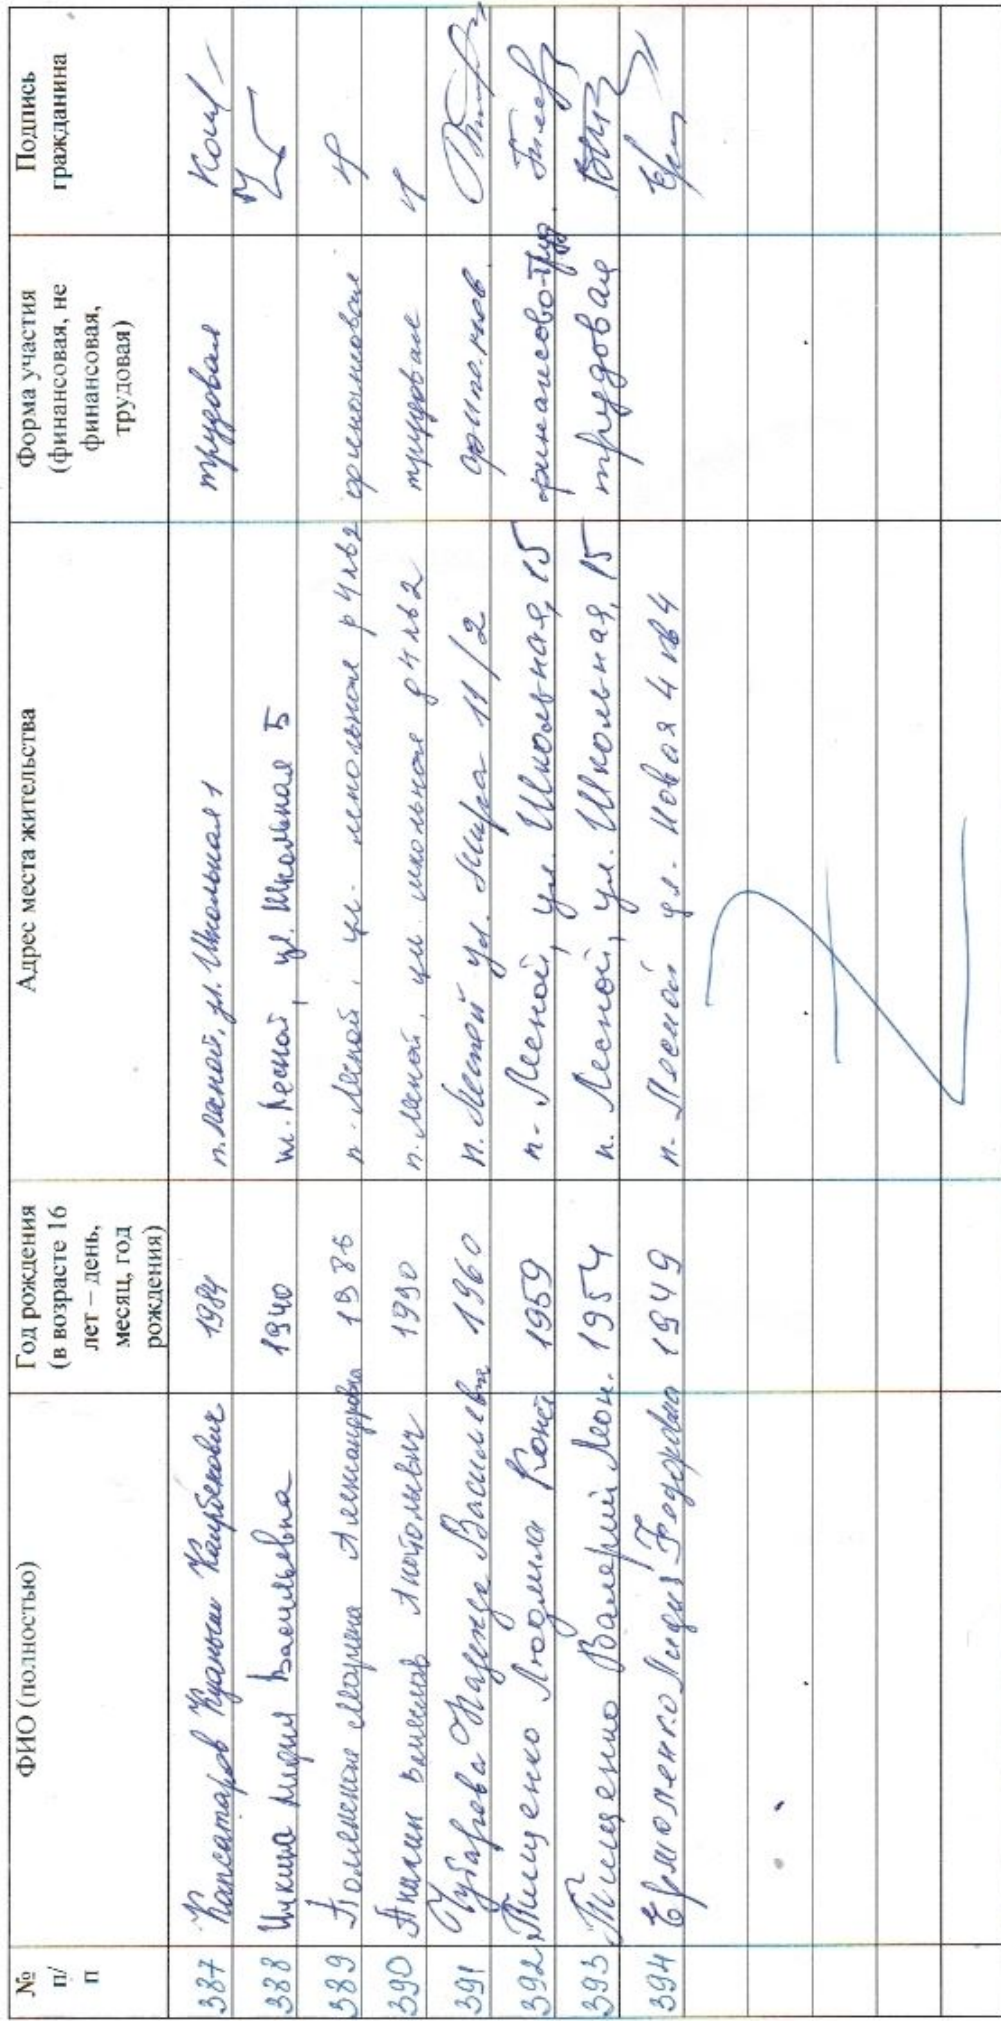 № п/п ФИО (полностью) Год рождения (в возрасте 16 лет – день, месяц, год рождения) Адрес места жительства Форма участия (финансовая, не финансовая, трудовая) Подпись гражданина
387 Капсатаров Каирбекович 1984 п. Лесной, ул. Школьная 1 трудовая
388 Лидия Васильевна 1940 п. Лесной, ул. Школьная 5
389 Марина Александровна 1986 п. Лесной, ул. Школьная д 4 кв 2 финансовая
390 Анатольевич 1990 п. Лесной, ул. Школьная д 4 кв 2 трудовая
391 Чубарева Надежда Васильевна 1960 п. Лесной ул. Мира 11/2 финанс
392 Тищенко Людмила Конст 1959 п. Лесной, ул. Школьная, 15 финансово-тру
393 Тищенко Валерий Леон. 1954 п. Лесной, ул. Школьная, 15 трудовая
394 Ермоленко Лидия Федоровна 1949 п. Лесной ул. Новая 4 кв 4